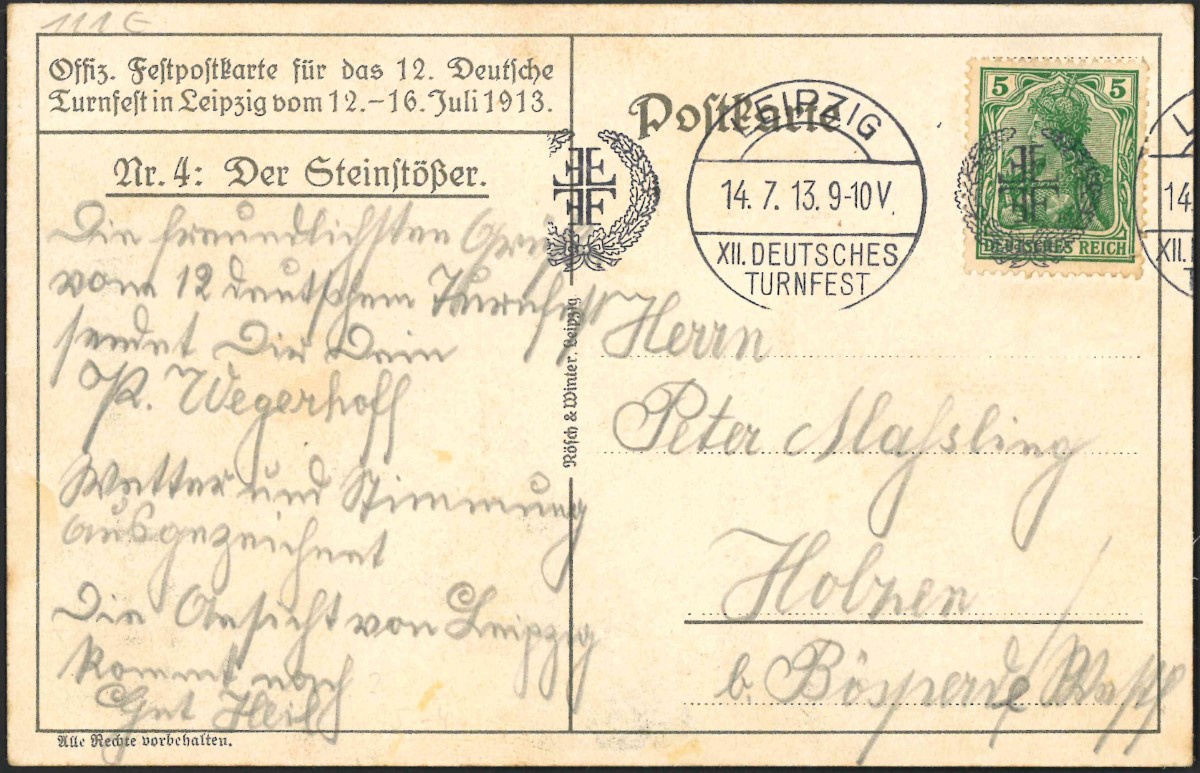 111 E
Offiz. Festpostkarte für das 12. Deutsche
Turnfest in Leipzig vom 12.-16. Juli 1913.
Nr. 4: Der Steinstößer.
Die freundlichsten Grüße
vom 12 deutschen Turnfest
sendet Dir Dein
P. Wegerhoff
Wetter und Stimmung
ausgezeichnet
Die Ansicht von Leipzig
kommt noch
Gut Heil
Alle Rechte vorbehalten.
Rösch & Winter, Leipzig
Postkarte
LEIPZIG
14.7.13.9-10V.
XII. DEUTSCHES
TURNFEST
5 5
DEUTSCHES REICH
L
14
XII.
T
Herrn
Peter Maßling
Holzen
b. Bösperde/Westf